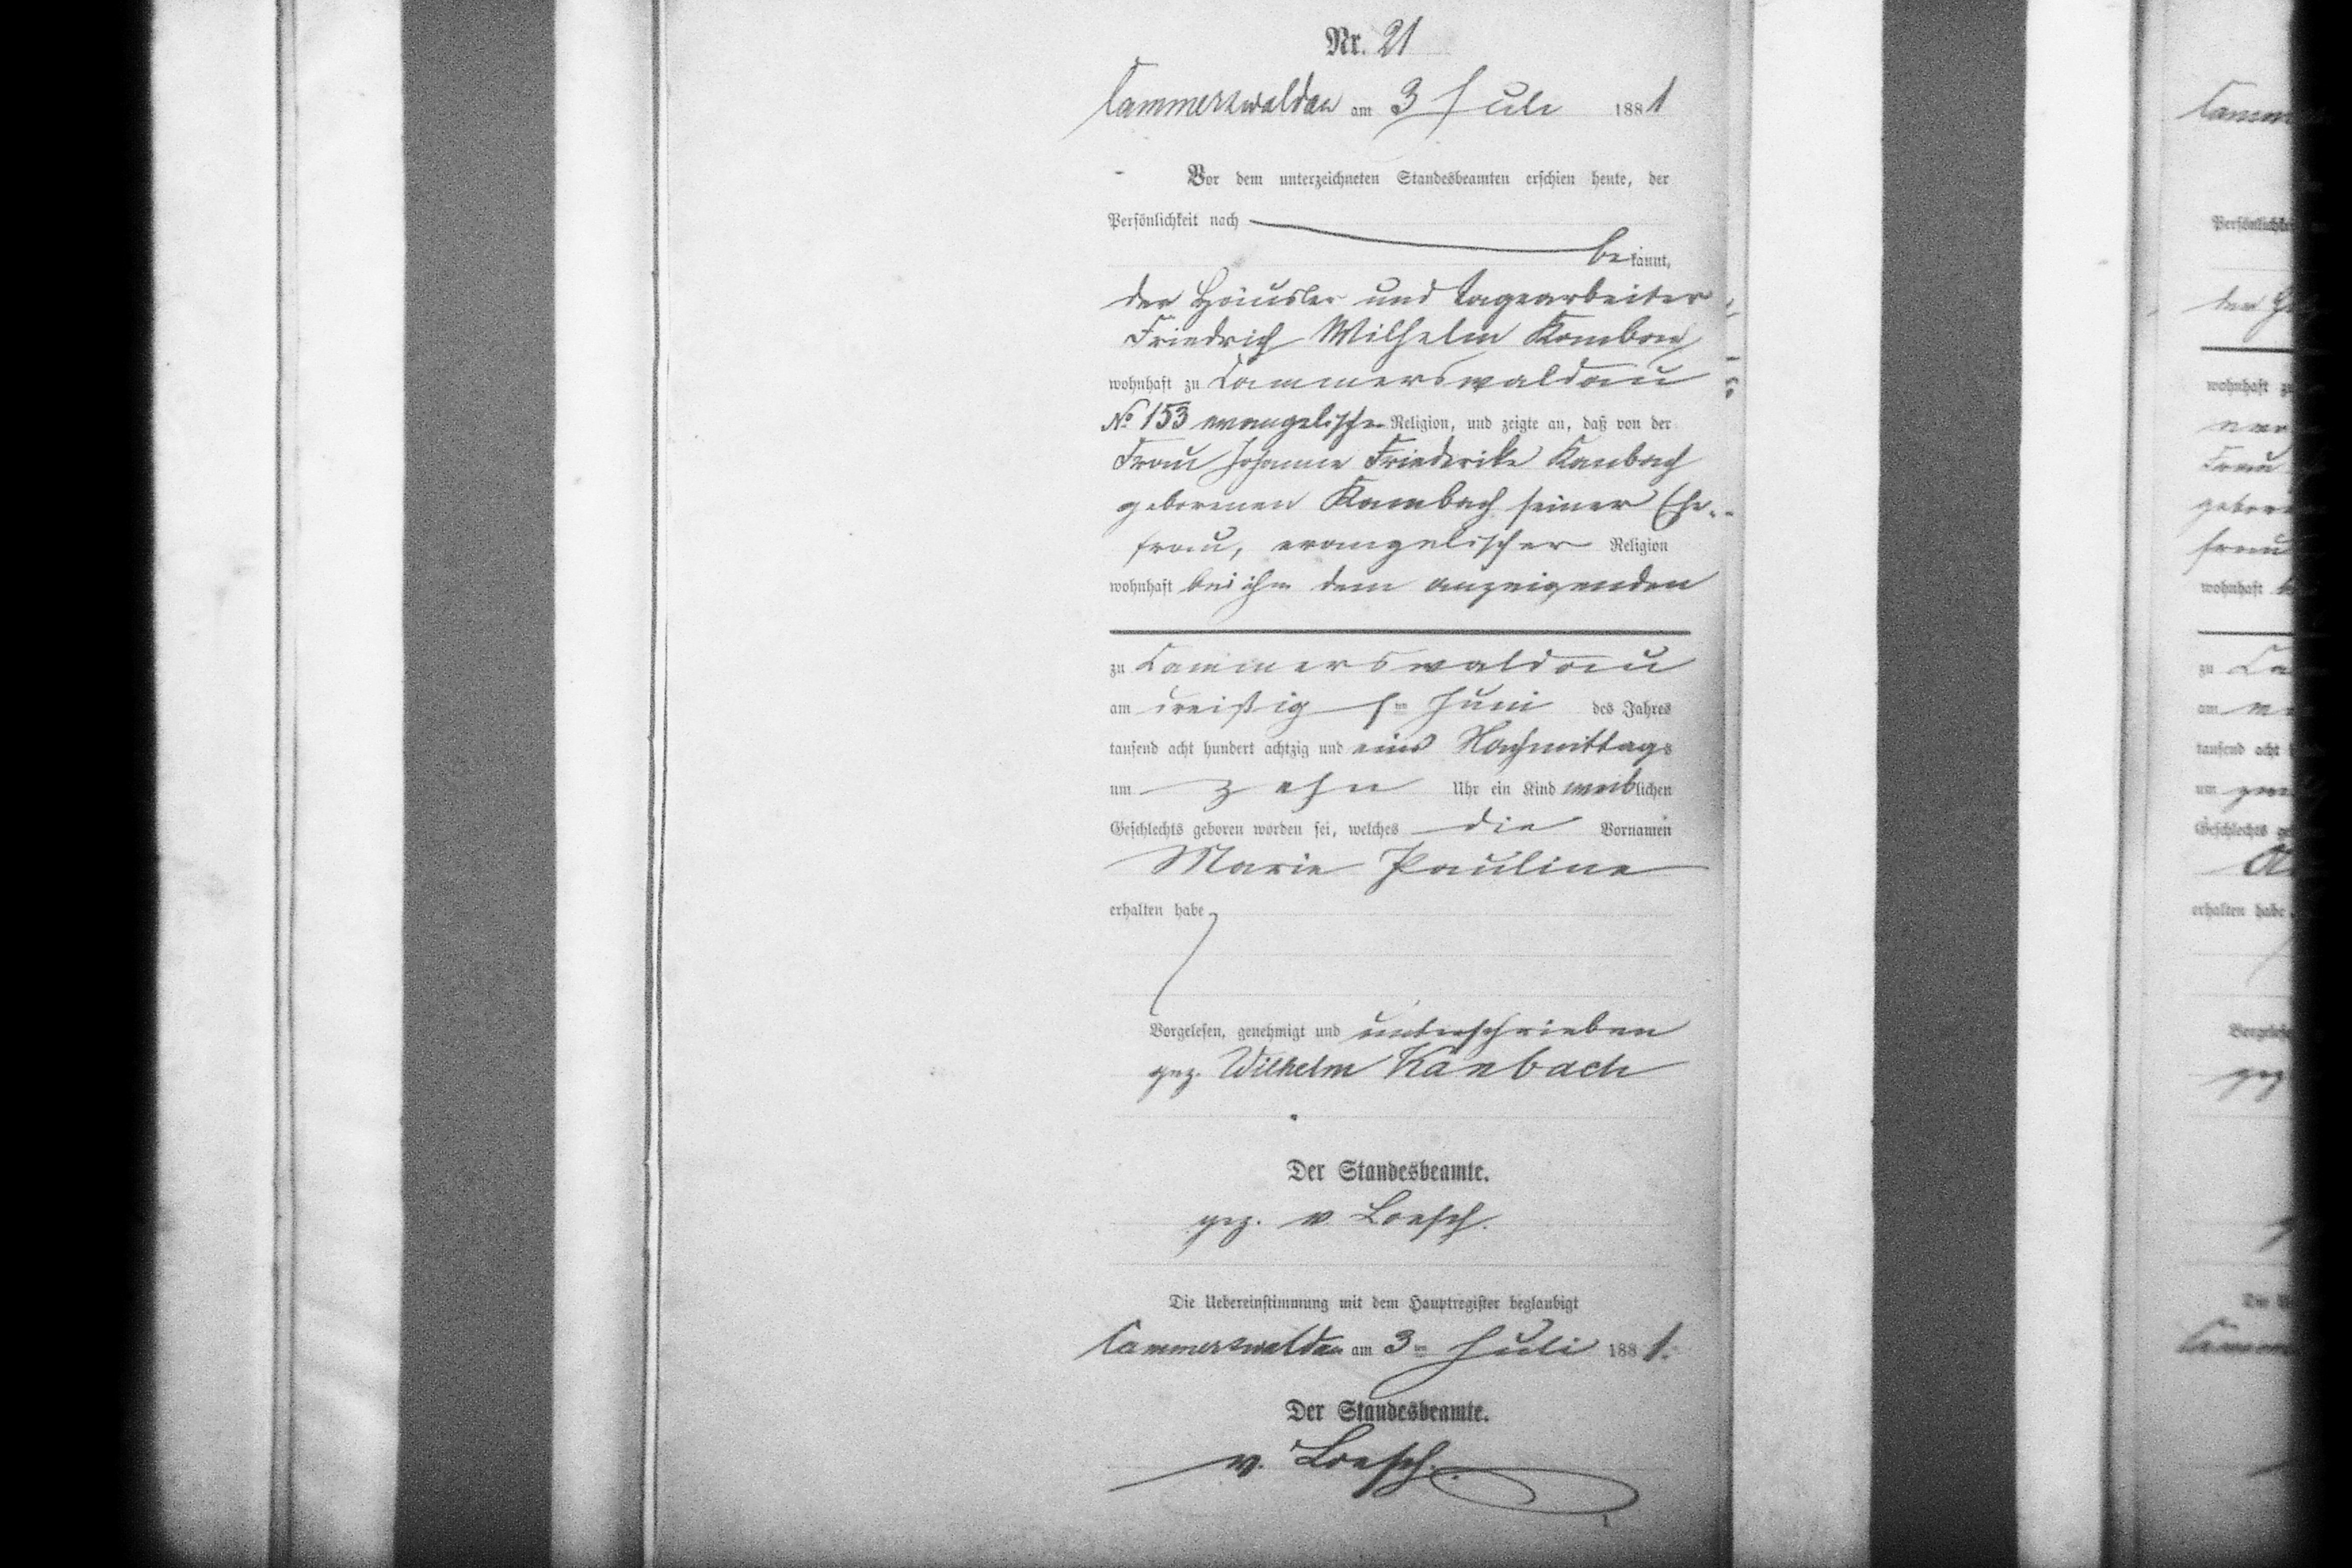 Nr. 21
Cammerswaldau am 3 Juli 1881
Vor dem unterzeichneten Standesbeamten erschien heute, der
Persönlichkeit nach
bekannt,
der Häusler und Tagearbeiter
Friedrich Wilhelm
wohnhaft zu Cammerswaldau
No 153 evangelischer Religion, und zeigte an, daß von der
Frau Johanne Friederike Kanbach
geborenen Kambach seiner Ehe-
frau, evangelischer Religion
wohnhaft bei ihm dem anzeigenden
zu Cammerswaldau
am dreißigsten Juni des Jahres
tausend acht hundert achtzig und eins Nachmittags
um zehn Uhr ein Kind weiblichen
Geschlechts geboren worden sei, welches die Vornamen
Marie Pauline
erhalten habe
Vorgelesen, genehmigt und unterschrieben
gez. Wilhelm Kanbach
Der Standesbeamte.
gez. v Loesch.
Die Uebereinstimmung mit dem Hauptregister beglaubigt
Cammerswaldau am 3ten Juli 1881.
Der Standesbeamte.
v. Loesch.